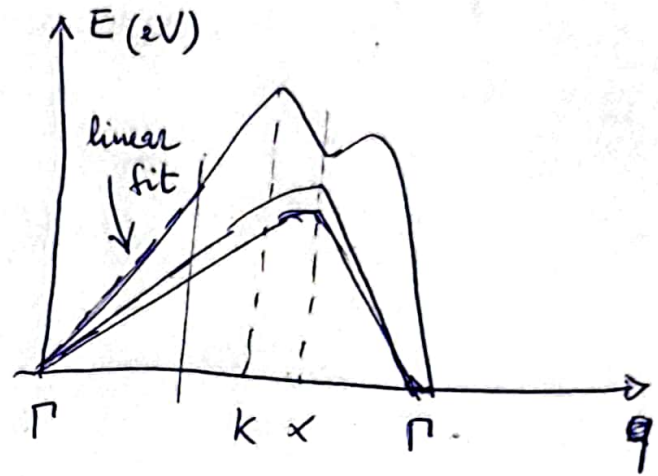 E (eV)
linear
fit
Γ K X Γ q